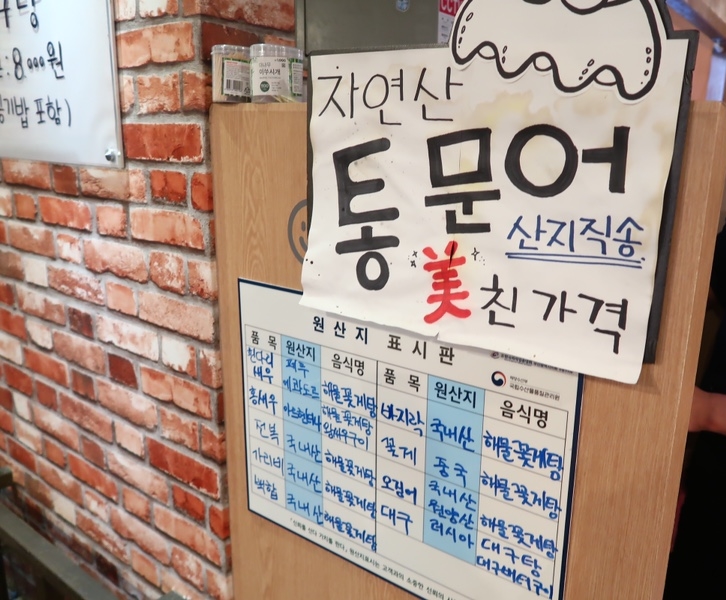 :8000원
공기밥 포함)
자연산
통문어
산지직송
美친가격
원산지 표시판
품목 원산지 음식명 품목 원산지 음식명
흰다리새우 페루 에콰도르 해물꽃게탕 바지락 국내산 해물꽃게탕
홍새우 아르헨티나 해물꽃게탕 왕새우구이 꽃게 중국 해물꽃게탕
전복 국내산 해물꽃게탕 오징어 국내산 원양산 해물꽃게탕
가리비 국내산 해물꽃게탕 대구 러시아 대구탕 대구버터구이
백합 국내산 해물꽃게탕
국립수산물품질관리원